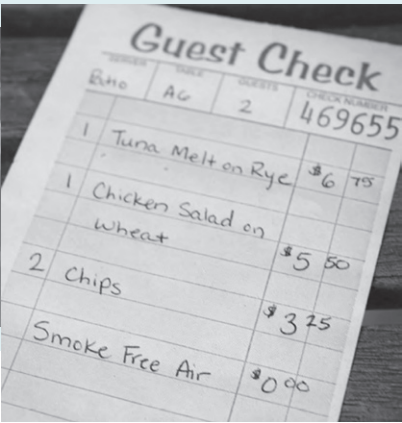 Guest Check
SERVER TABLE GUESTS CHECK NUMBER
AG 2 469655
1 Tuna Melt on Rye $6 75
1 Chicken Salad on
Wheat $5 50
2 Chips $3 25
Smoke Free Air $0 00